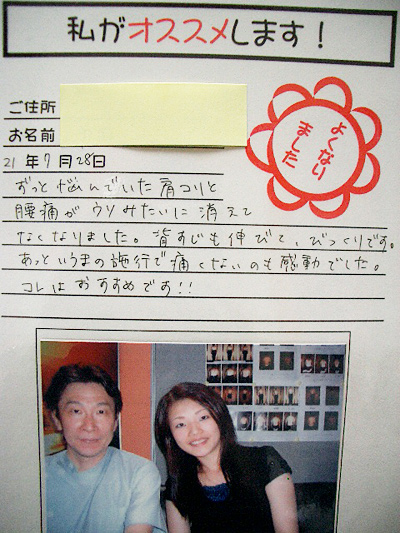 私がオススメします！
ご住所
お名前
よくなり
ました
21年7月28日
ずっと悩んでいた肩コリと
腰痛がウソみたいに消えて
なくなりました。背すじも伸びて、びっくりです。
あっというまの施行で痛くないのも感動でした。
コレはおすすめです！！